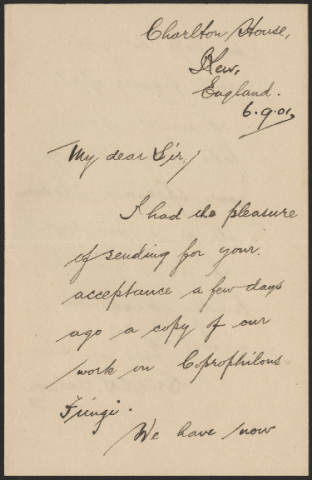 Charlton House,
Kew,
England.
6.9.01.
My dear Sir,
I had the pleasure
of sending for your
acceptance a few days
ago a copy of our
work on Coprophilous
Fungi.
We have now